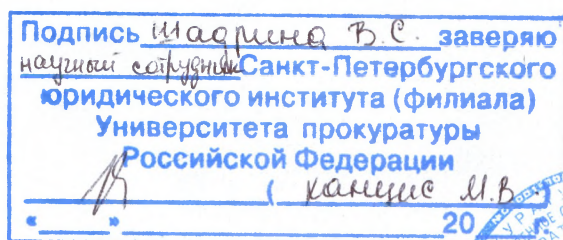 Подпись Шадрина В.С. заверяю
научный сотрудник Санкт-Петербургского
юридического института (филиала)
Университета прокуратуры
Российской Федерации
( Канцис М.В. )
« » 20 г.